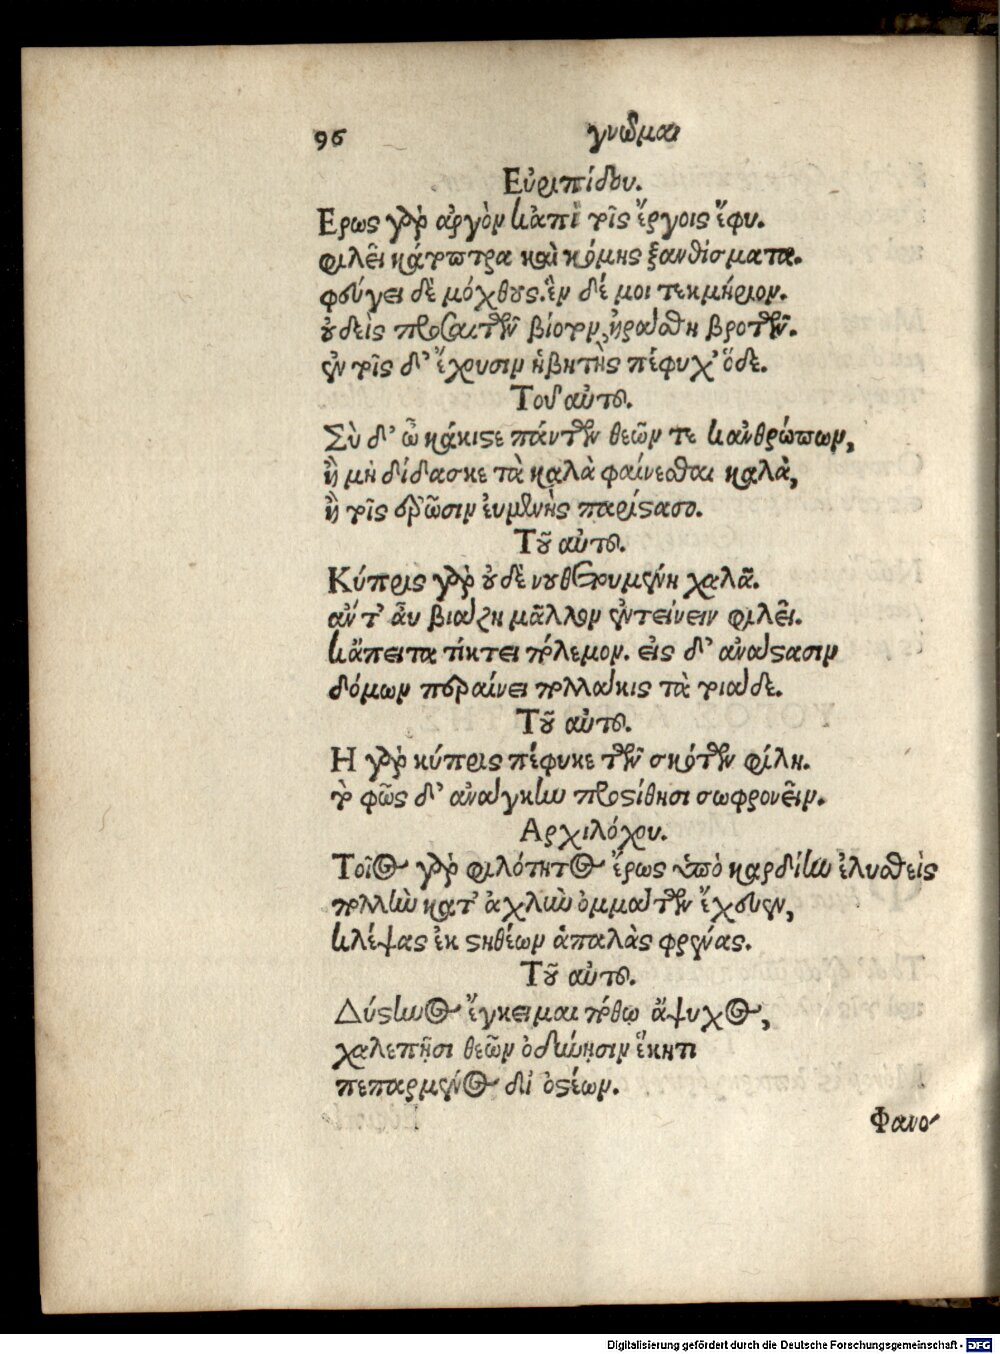 96 γνῶμαι
Εὐριπίδου.
Ερως γὰρ ἀργὸν κἀπὶ τοῖς ἔργοις ἔφυ.
φιλεῖ κάτοπτρα καὶ κόμης ξανθίσματα.
φεύγει δὲ μόχθους. ἓν δέ μοι τεκμήριον.
οὐδεὶς προσαιτῶν βίοτον, ἠράσθη βροτῶν.
ἐν τοῖς δ' ἔχουσιν ἡβητὴς πέφυχ' ὅδε.
Τοῦ αὐτοῦ.
Σὺ δ' ὦ κάκιστε πάντων θεῶν τε κἀνθρώπων,
ἢ μὴ δίδασκε τὰ καλὰ φαίνεσθαι καλὰ,
ἢ τοῖς ἐρῶσιν εὐμενὴς παρίστασο.
Τοῦ αὐτοῦ.
Κύπρις γὰρ οὐδὲ νουθετουμένη χαλᾶ.
ἄν τ' ἂυ βιάζη μᾶλλον ἐντείνειν φιλεῖ.
κἄπειτα τίκτει πόλεμον. εἰς δ' ἀνάστασιν
δόμων περαίνει πολλάκις τὰ τοιάδε.
Τοῦ αὐτοῦ.
Η γὰρ κύπρις πέφυκε τῶν σκότων φίλη.
τὸ φῶς δ' ἀνάγκην προστίθησι σωφρονεῖν.
Αρχιλόχου.
Τοῖος γὰρ φιλότητος ἔρως ὑπὸ καρδίην ἐλυσθεὶς
πολλὴν κατ' ἀχλὺν ὀμμάτων ἔχευεν,
κλέψας ἐκ στηθέων ἁπαλὰς φρένας.
Τοῦ αὐτοῦ.
Δύστηνος ἔγκειμαι πόθῳ ἄψυχος,
χαλεπῇσι θεῶν ὀδύνῃσιν ἕκητι
πεπαρμένος δι' ὀστέων.
Φανο-
Digitalisierung gefördert durch die Deutsche Forschungsgemeinschaft - DFG